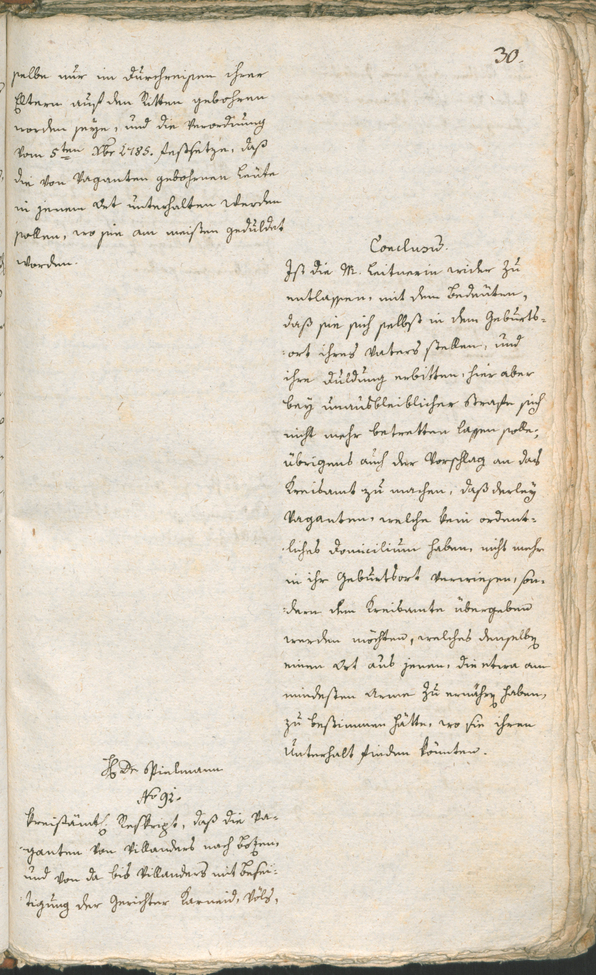 30.
selbe nur im durchreisen ihrer
Eltern auf den Ritten gebohren
worden seye, und die Verordnung
vom 5ten Xbr 1785. festsetze, daß
die von Vaganten gebohrnen Leute
in jenem Ort unterhalten werden
sollen, wo sie am meisten geduldet
worden.
Conclusum.
Ist die M. Leitnerin wider zu
entlassen, mit dem Bedeuten,
daß sie sich selbst in dem Geburts-
-ort ihres Vaters stellen, und
ihre Duldung erbitten, hier aber
bey unausbleiblicher Strafe sich
nicht mehr betretten lassen solle,
übrigens auch der Vorschlag an das
Kreisamt zu machen, daß derley
Vaganten, welche kein ordent-
-liches Domicilium haben, nicht mehr
in ihr Geburtsort verwiesen, son-
-dern dem Kreisamte übergeben
werden möchten, welches denselben
einen Ort aus jenen, die etwa am
mindesten Arme zu ernähren haben,
zu bestimmen hätte, wo sie ihren
Unterhalt finden könnten.
H. De Spielmann
No 92.
Kreisämtl. Reskript, daß die Va-
-ganten von Villanders nach Botzen,
und von da bis Villanders mit Besei-
-tigung der Gerichter Karneid, Völs,